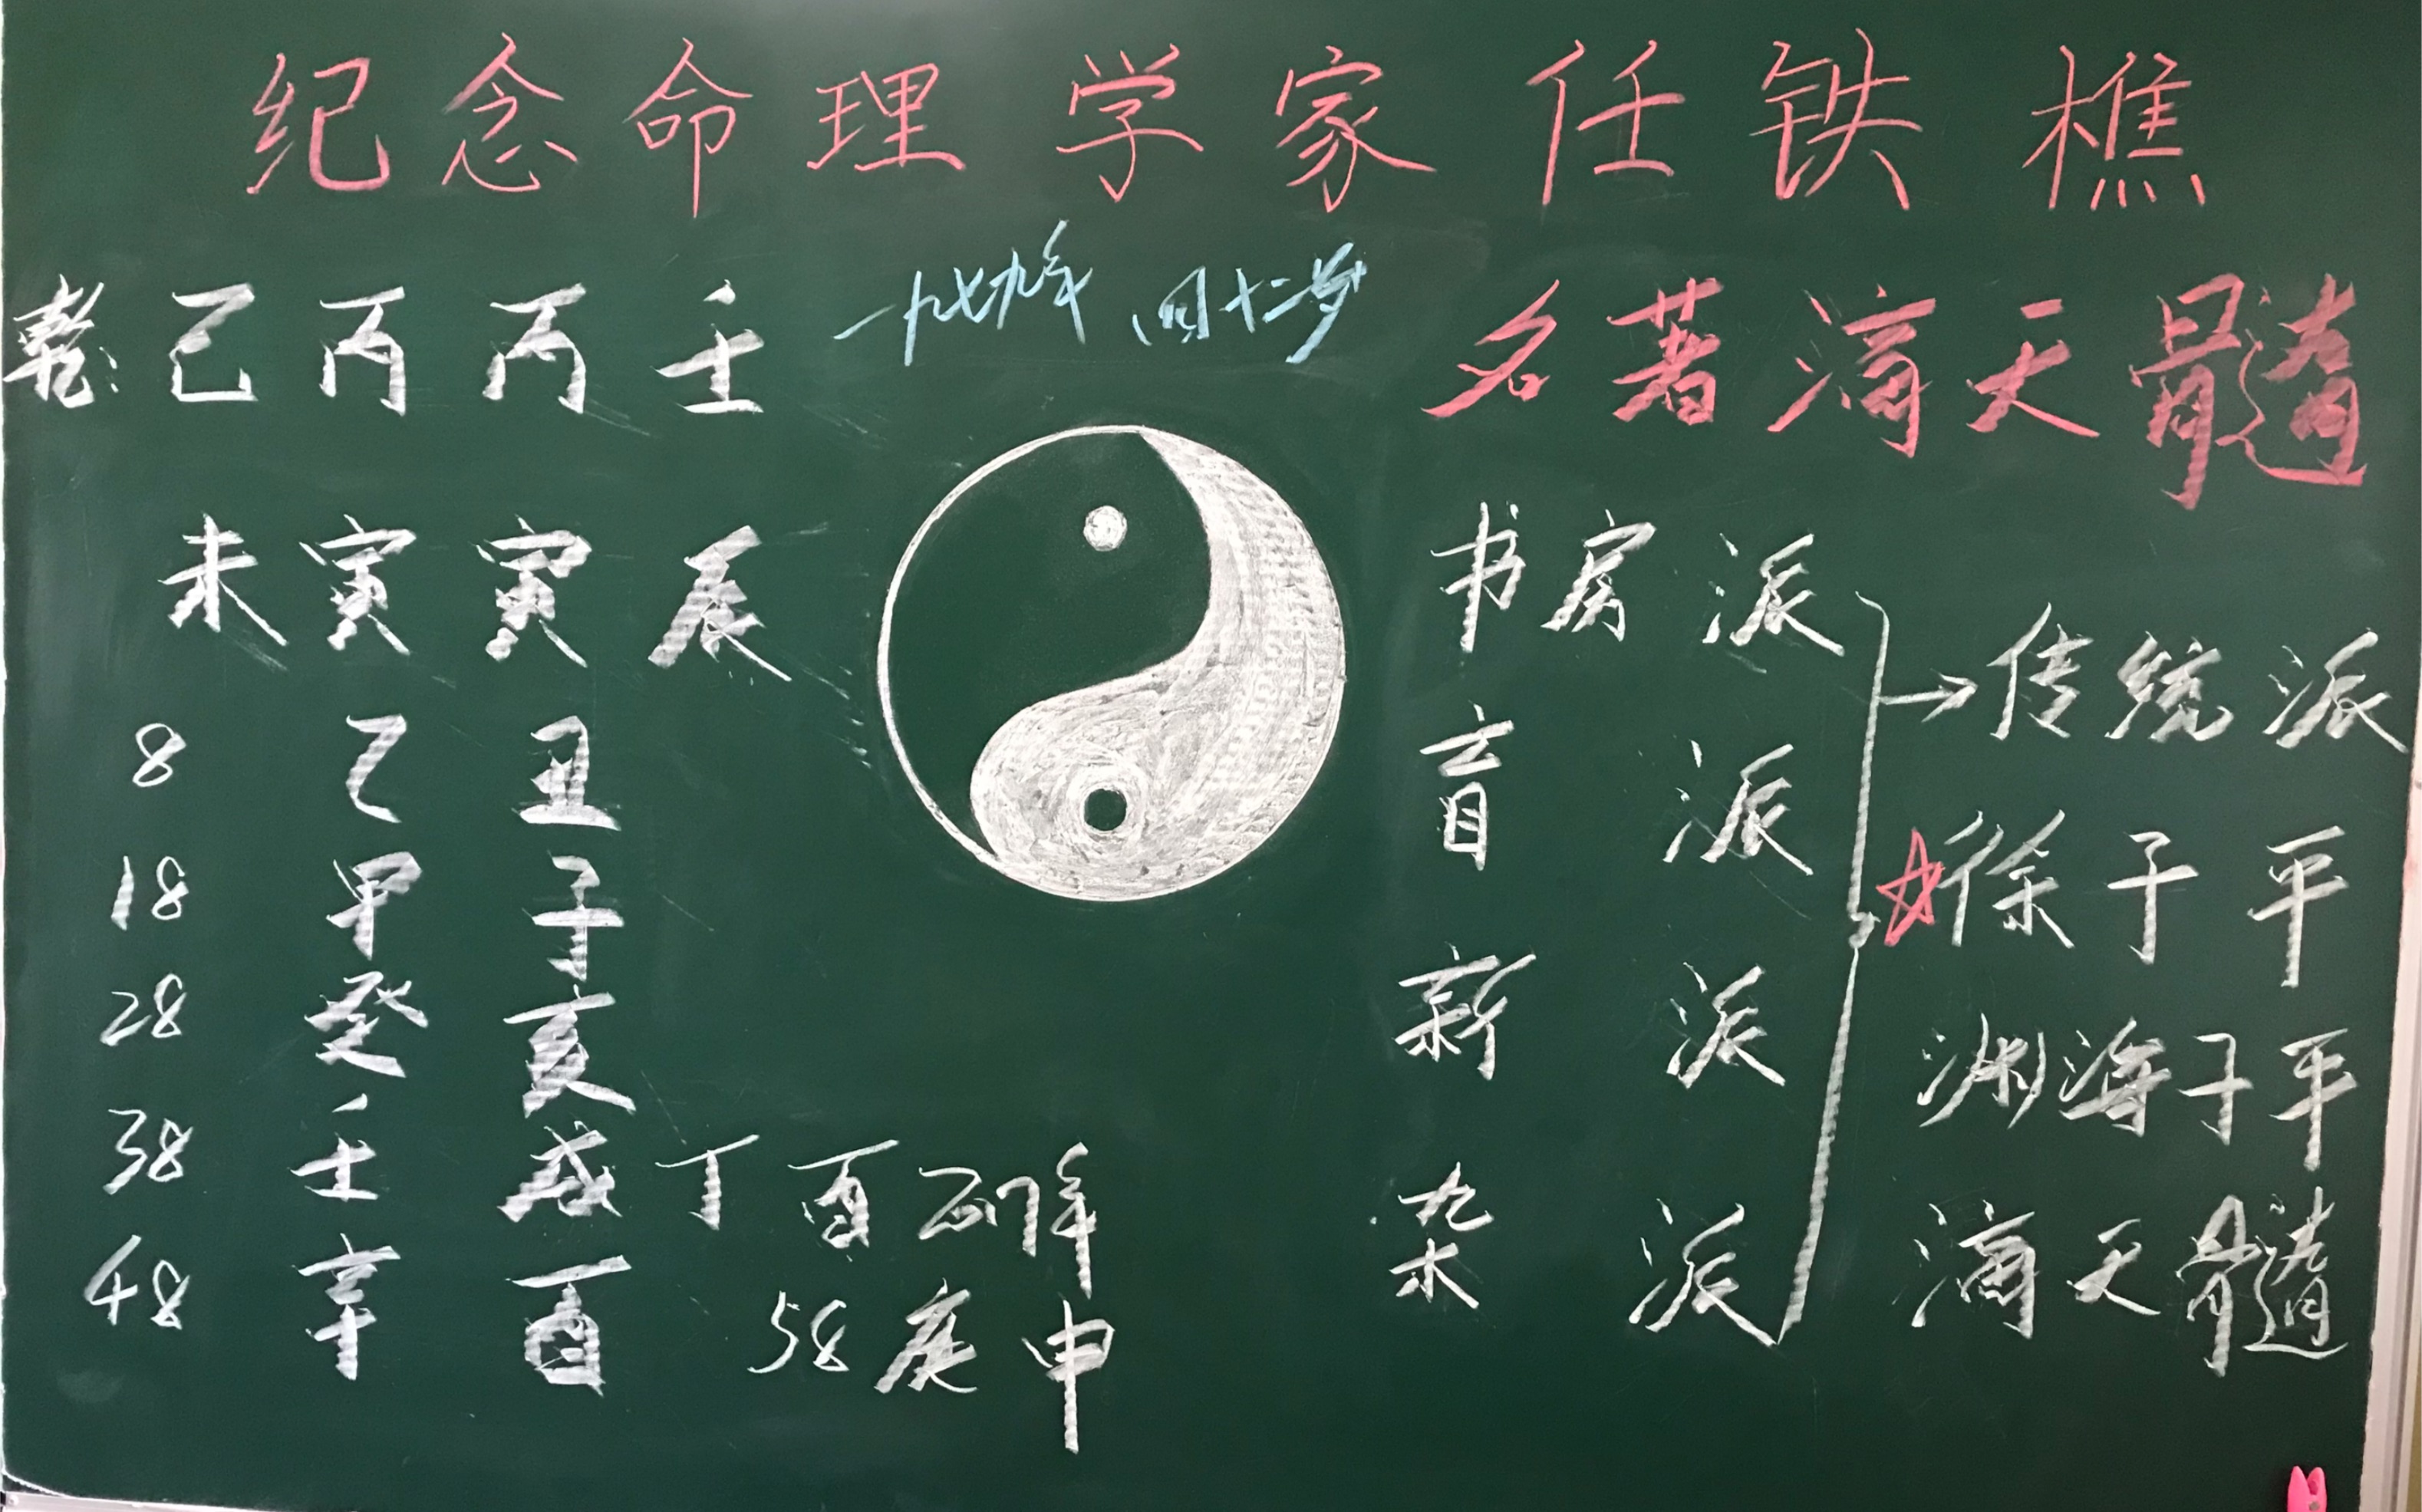 纪念命理学家任铁樵
乾:己丙丙壬
一九七九年 四十二岁
名著滴天髓
未寅寅辰
8 乙丑
18 甲子
28 癸亥
38 壬戌
48 辛酉
丁酉
58庚申
书房派
盲派
新派
杂派
→传统派
☆徐子平
渊海子平
滴天髓